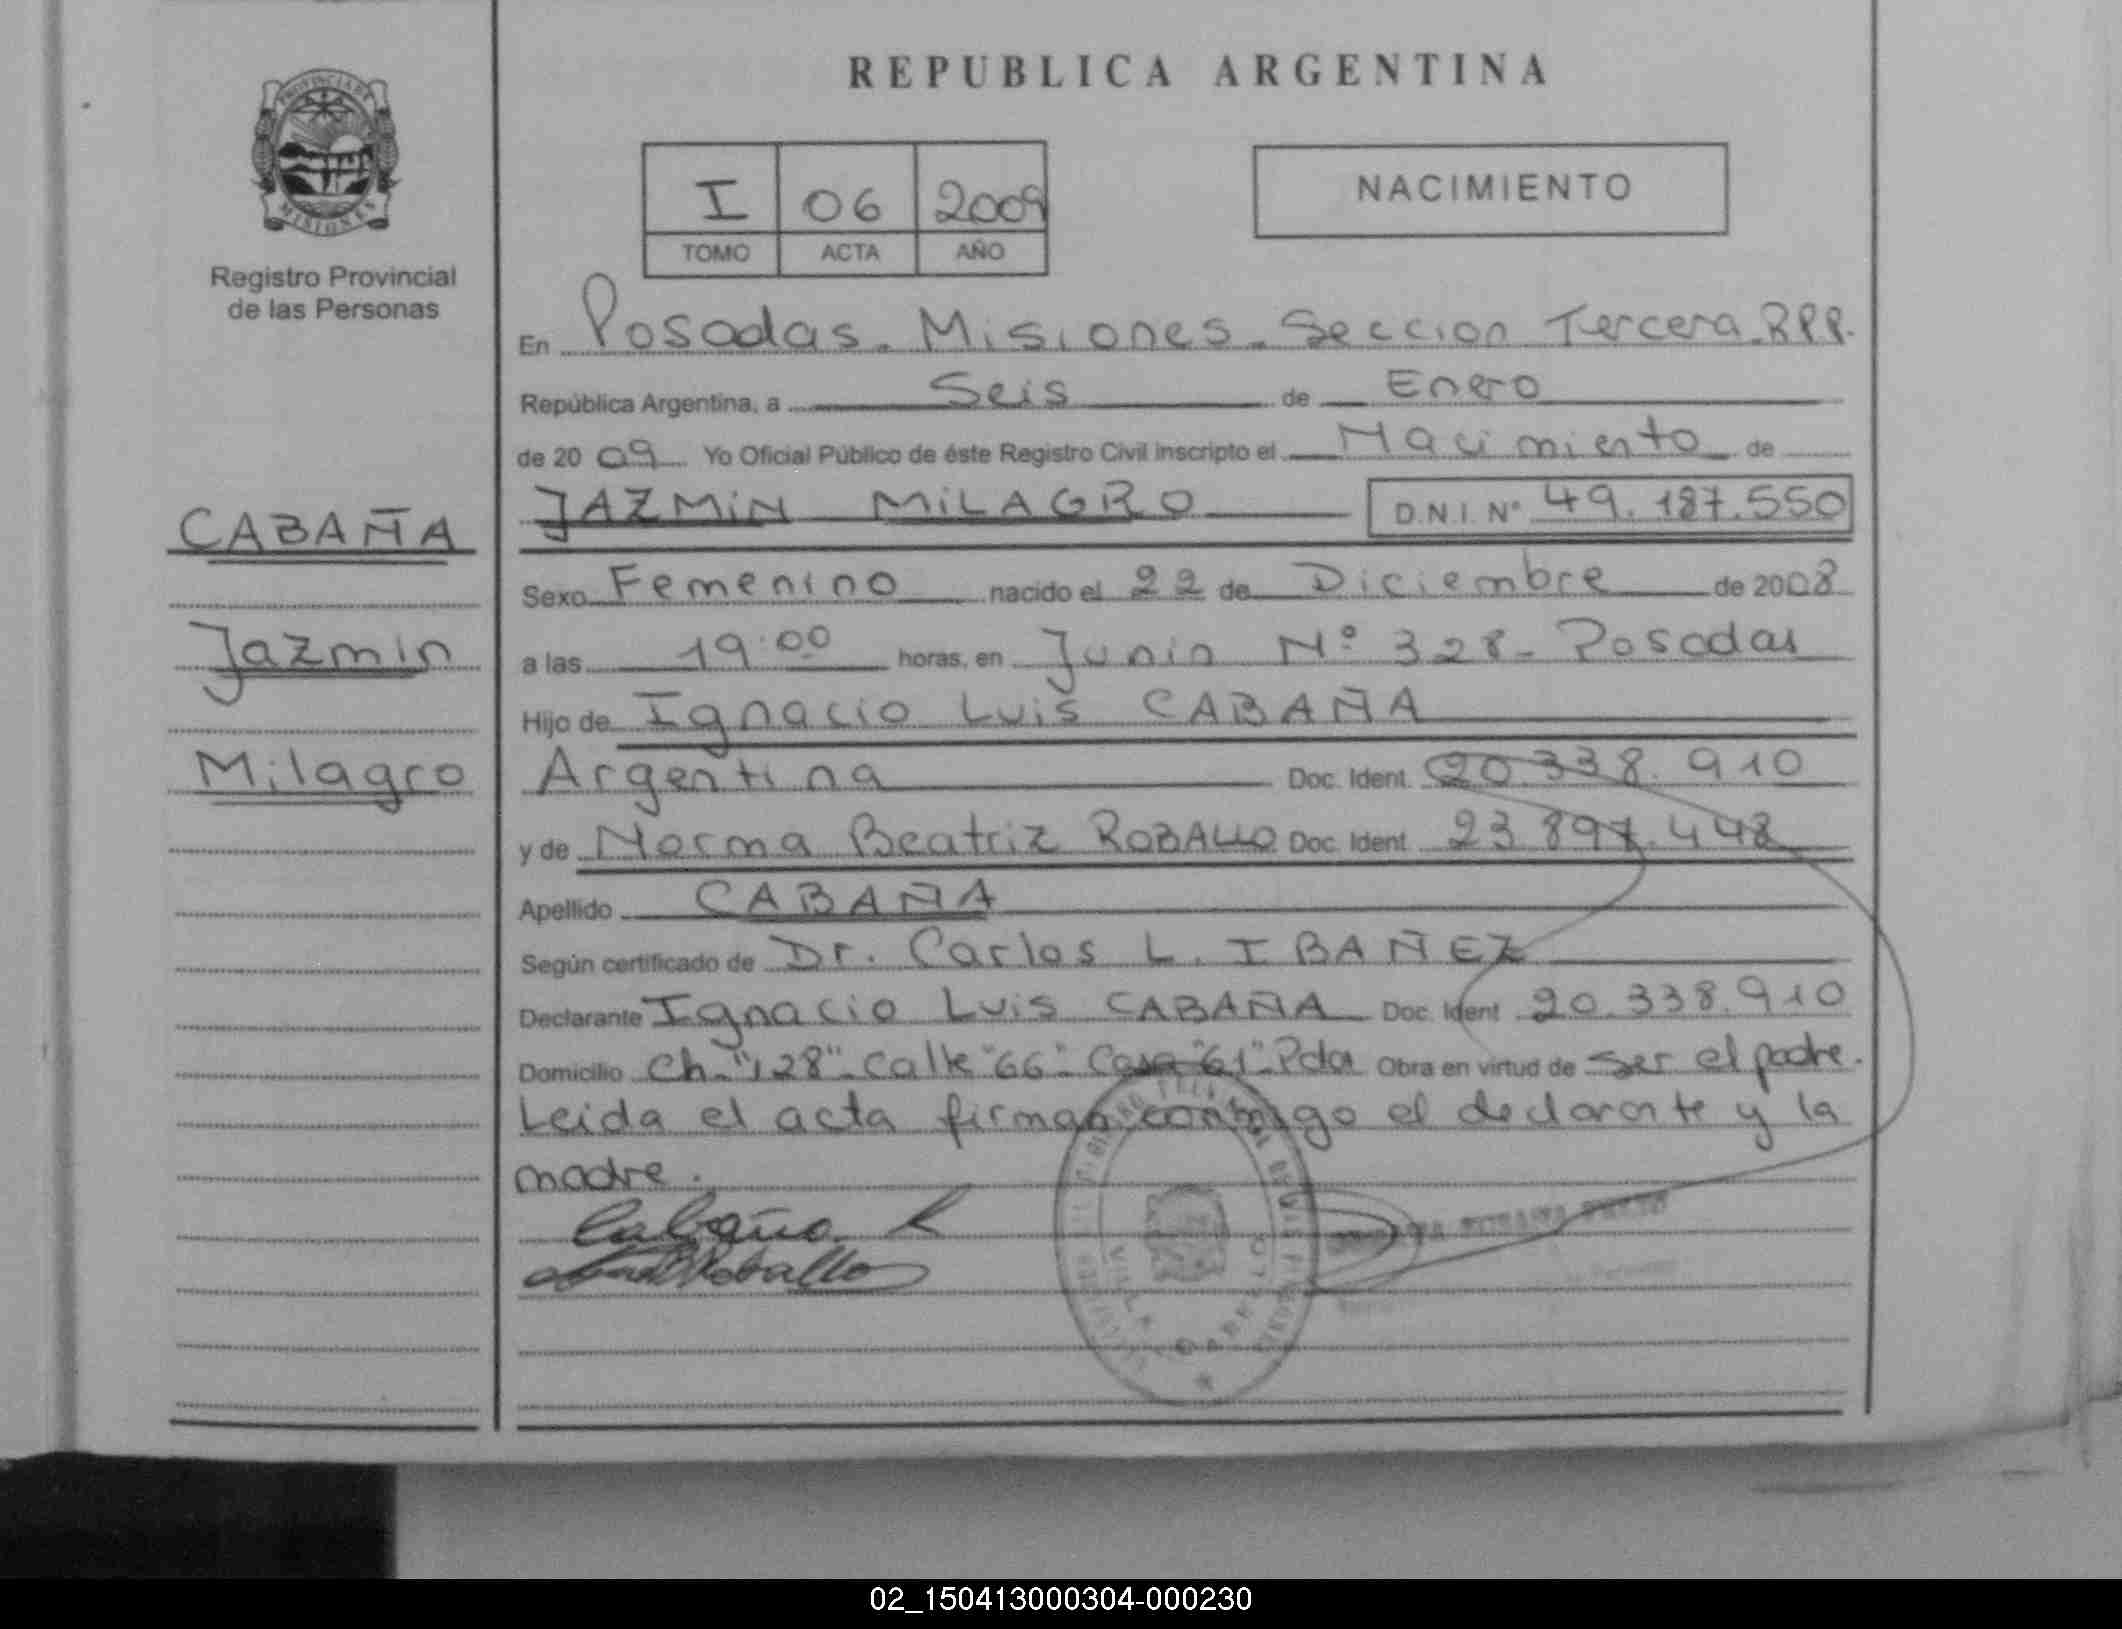 REPUBLICA ARGENTINA
PROVINCIA DE
MISIONES
Registro Provincial
de las Personas
I 06 2009
TOMO ACTA AÑO
NACIMIENTO
En Posadas. Misiones. Seccion Tercera. R.P.P.
República Argentina, a Seis de Enero
de 2009 Yo Oficial Público de éste Registro Civil inscripto el Nacimiento de
JAZMIN MILAGRO D.N.I. Nº 49.187.550
CABAÑA
Jazmin
Milagro
Sexo Femenino nacido el 22 de Diciembre de 2008
a las 19:00 horas, en Junin Nº 328 - Posadas
Hijo de Ignacio Luis CABAÑA
Argentina Doc. Ident. 20.338.910
y de Norma Beatriz ROBALLO Doc. Ident. 23.897.448
Apellido CABAÑA
Según certificado de Dr. Carlos L. IBAÑEZ
Declarante Ignacio Luis CABAÑA Doc. Ident. 20.338.910
Domicilio Ch. "128" - Calle "66" - Casa "61" - Pdas Obra en virtud de ser el padre.
Leida el acta firman conmigo el declarante y la
madre.
Cabaña
Roballo
VILLA CABELLO
02_150413000304-000230